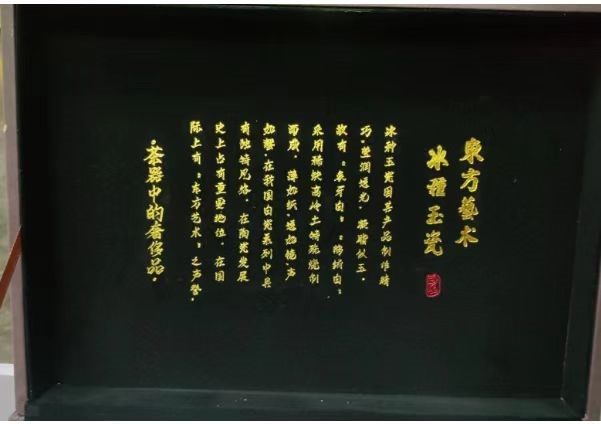 東方藝术
冰種玉瓷
冰种玉瓷因其产品制作精
巧。莹润透光，凝脂似玉。
故有：象牙白：：鹅绒白：
采用稀缺高岭土特殊烧制
而成，薄如纸，透如镜，声
如磬，在我国白瓷系列中具
有独特风格，在陶瓷发展
史上占有重要地位，在国
际上有：东方艺术：之声誉。
·茶器中的奢侈品·